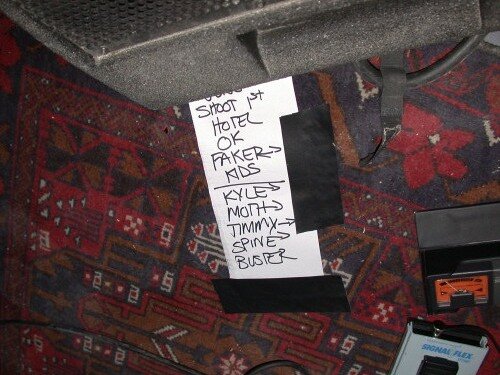 SHOOT 1st
HOTEL
OK
FAKER→
KIDS
KYLE→
MOTH→
TIMMY→
SPINE→
BUSTER
SIGNAL FLEX